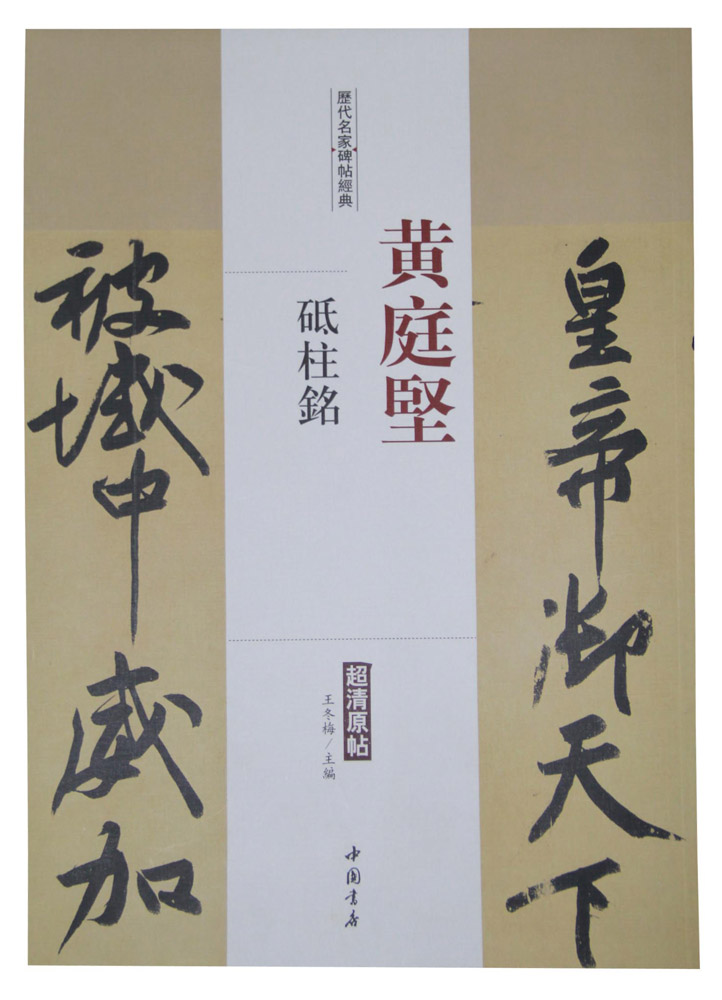 皇帝御天下
黄庭堅
歷代名家碑帖經典
砥柱銘
超清原帖
王冬梅/主編
中國書店
被域中威加